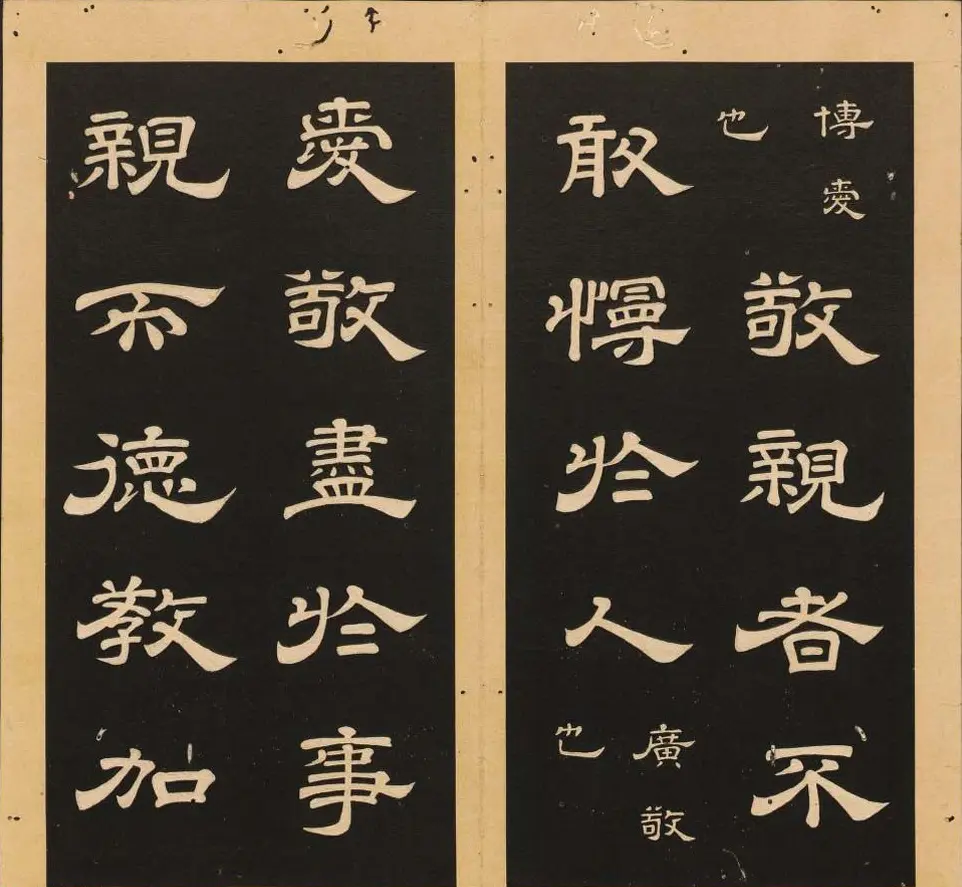 博愛
也
敬親者不
敢慢於人
廣敬
也
愛敬盡於事
親而德教加